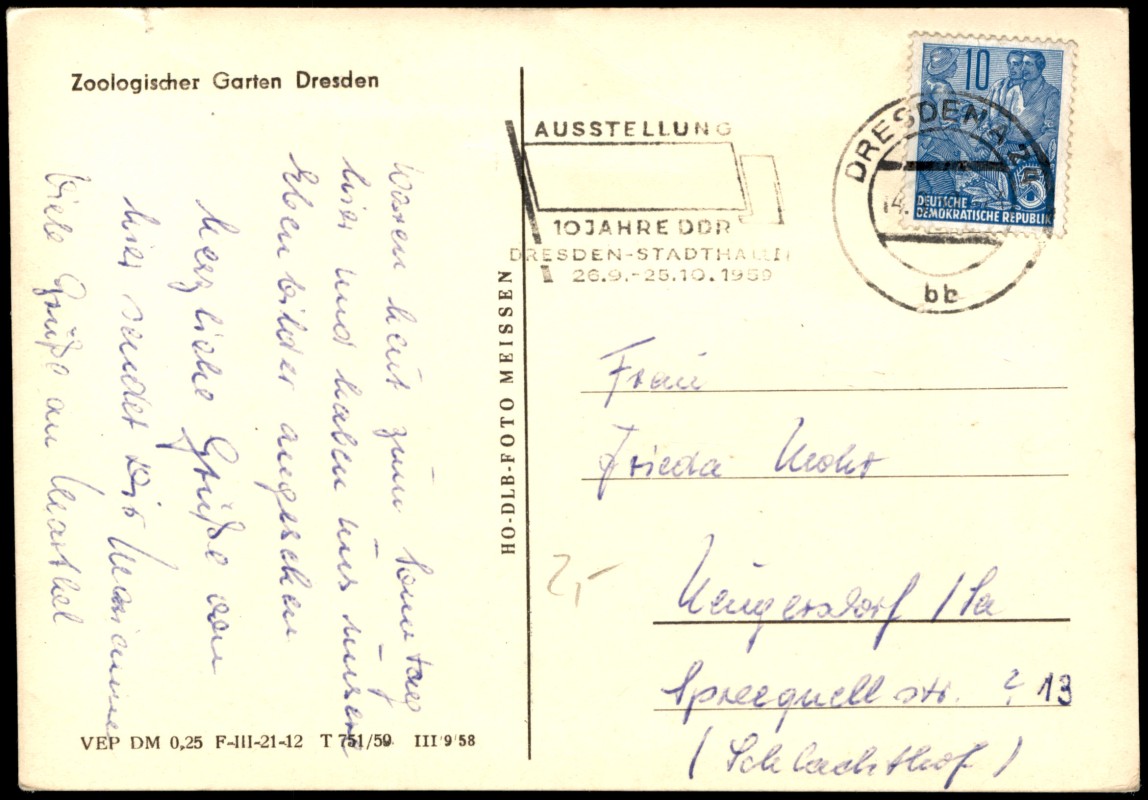 Zoologischer Garten Dresden
Waren heut zum Sonntag
hier und haben uns unsere
Ebenbilder angesehen
Herzliche Grüße von
hier sendet Dir Marianne
Viele Grüße an Marthel
HO-DLB-FOTO MEISSEN
VEP DM 0,25 F-III-21-12 T 751/59 III/9/58
AUSSTELLUNG
10 JAHRE DDR
DRESDEN-STADTHALLE
26.9.-25.10.1959
DRESDEN A 24
14.
bb
10
DEUTSCHE
DEMOKRATISCHE REPUBLIK
Frau
Frieda
Neugersdorf / Sa
Spreequellstr. ? 13
(Schlachthof)
2,-